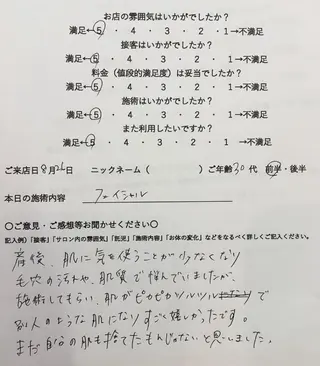 お店の雰囲気はいかがでしたか？
満足←5 ・ 4 ・ 3 ・ 2 ・ 1→不満足
接客はいかがでしたか？
満足←5 ・ 4 ・ 3 ・ 2 ・ 1→不満足
料金（値段的満足度）は妥当でしたか？
満足←5 ・ 4 ・ 3 ・ 2 ・ 1→不満足
施術はいかがでしたか？
満足←5 ・ 4 ・ 3 ・ 2 ・ 1→不満足
また利用したいですか？
満足←5 ・ 4 ・ 3 ・ 2 ・ 1→不満足
ご来店日8月26日 ニックネーム（ ）ご年齢30代 前半・後半
本日の施術内容 フェイシャル
〇ご意見・ご感想等お聞かせください〇
記入例）「接客」「サロン内の雰囲気」「託児」「施術内容」「お体の変化」などをなるべく詳しくご記入ください。
産後、肌に気を使うことが少なくなり
毛穴の汚れや、肌質で悩んでいましたが、
施術してもらい、肌がピカピカツルツルで
別人のような肌になりすごく嬉しかったです。
まだ自分の肌も捨てたもんじゃないと思いました。